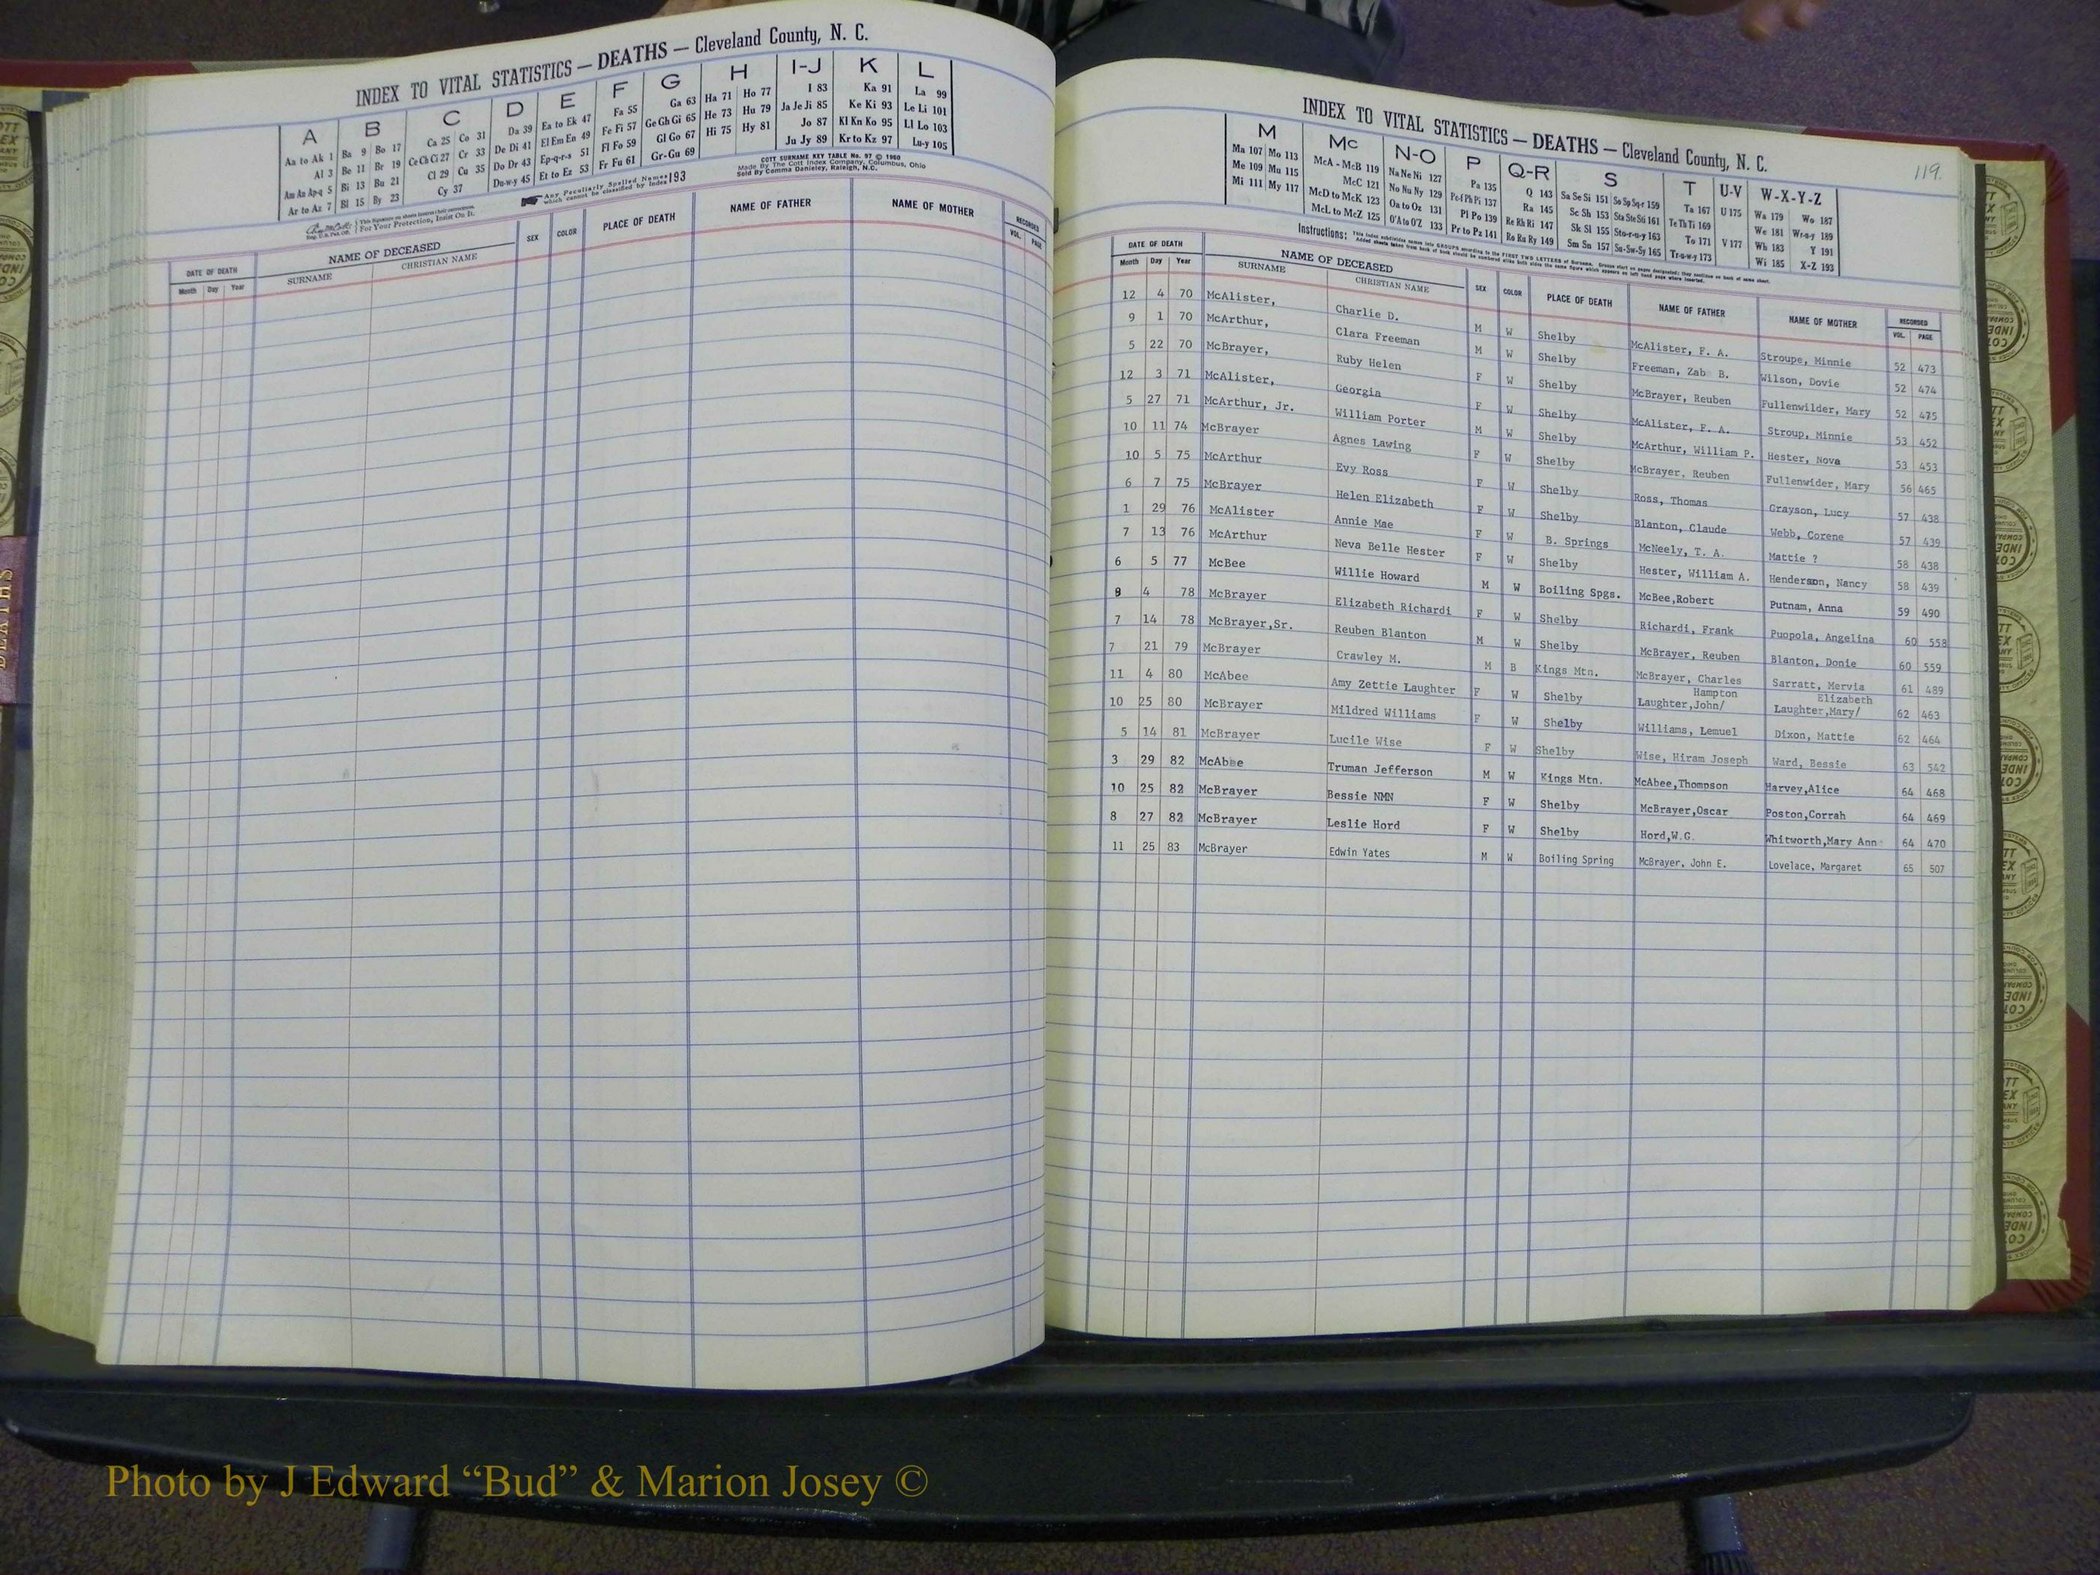 INDEX TO VITAL STATISTICS — DEATHS — Cleveland County, N. C.
A B C D E F G H I-J K L
Aa to Ak 1 Ba 9 Bo 17 Ca 25 Co 31 Da 39 Ea to Ek 47 Fa 55 Ga 63 Ha 71 Ho 77 I 83 Ka 91 La 99
Al 3 Be 11 Br 19 Ce Ch Ci 27 Cr 33 De Di 41 El Em En 49 Fe Fi 57 Ge Gh Gi 65 He 73 Hu 79 Ja Je Ji 85 Ke Ki 93 Le Li 101
Am An Ap-q 5 Bi 13 Bu 21 Cl 29 Cu 35 Do Dr 43 Ep-q-r-s 51 Fl Fo 59 Gl Go 67 Hi 75 Hy 81 Jo 87 Kl Kn Ko 95 Ll Lo 103
Ar to Az 7 Bl 15 By 23 Cy 37 Du-w-y 45 Et to Ez 53 Fr Fu 61 Gr-Gu 69 Ju Jy 89 Kr to Kz 97 Lu-y 105
COTT SURNAME KEY TABLE No. 97 © 1960
Made By The Cott Index Company, Columbus, Ohio
Sold By Comma Danieley, Raleigh, N.C.
Any Peculiarly Spelled Names which cannot be classified by Index 193
For Your Protection, Insist On It.
DATE OF DEATH NAME OF DECEASED SEX COLOR PLACE OF DEATH NAME OF FATHER NAME OF MOTHER RECORDED
Month Day Year SURNAME CHRISTIAN NAME VOL. PAGE
119
INDEX TO VITAL STATISTICS — DEATHS — Cleveland County, N. C.
M Mc N-O P Q-R S T U-V W-X-Y-Z
Ma 107 Mo 113 McA - McB 119 Na Ne Ni 127 Pa 135 Q 143 Sa Se Si 151 So Sp Sq-r 159 Ta 167 U 175 Wa 179 Wo 187
Me 109 Mu 115 McC 121 No Nu Ny 129 Pe-f Ph Pi 137 Ra 145 Sc Sh 153 Sta Ste Sti 161 Te Th Ti 169 We 181 Wr-u-y 189
Mi 111 My 117 McD to McK 123 Oa to Oz 131 Pl Po 139 Re Rh Ri 147 Sk Sl 155 Sto-r-u-y 163 To 171 V 177 Wh 183 Y 191
McL to McZ 125 O'A to O'Z 133 Pr to Pz 141 Ro Ru Ry 149 Sm Sn 157 Su-Sw-Sy 165 Tr-u-w-y 173 Wi 185 X-Z 193
Instructions: This index subdivides names into GROUPS according to the FIRST TWO LETTERS of Surname. Groups start on pages designated; they continue on back of same sheet.
Added sheets taken from back of book should be numbered alike both sides the same figure which appears on left hand page where inserted.
DATE OF DEATH NAME OF DECEASED SEX COLOR PLACE OF DEATH NAME OF FATHER NAME OF MOTHER RECORDED
Month Day Year SURNAME CHRISTIAN NAME VOL. PAGE
12 4 70 McAlister, Charlie D. M W Shelby McAlister, F. A. Stroupe, Minnie 52 473
9 1 70 McArthur, Clara Freeman M W Shelby Freeman, Zab B. Wilson, Dovie 52 474
5 22 70 McBrayer, Ruby Helen F W Shelby McBrayer, Reuben Fullenwilder, Mary 52 475
12 3 71 McAlister, Georgia F W Shelby McAlister, F. A. Stroup, Minnie 53 452
5 27 71 McArthur, Jr. William Porter M W Shelby McArthur, William P. Hester, Nova 53 453
10 11 74 McBrayer Agnes Lawing F W Shelby McBrayer, Reuben Fullenwider, Mary 56 465
10 5 75 McArthur Evy Ross F W Shelby Ross, Thomas Grayson, Lucy 57 438
6 7 75 McBrayer Helen Elizabeth F W Shelby Blanton, Claude Webb, Corene 57 439
1 29 76 McAlister Annie Mae F W B. Springs McNeely, T. A. Mattie ? 58 438
7 13 76 McArthur Neva Belle Hester F W Shelby Hester, William A. Henderson, Nancy 58 439
6 5 77 McBee Willie Howard M W Boiling Spgs. McBee,Robert Putnam, Anna 59 490
4 78 McBrayer Elizabeth Richardi F W Shelby Richardi, Frank Puopola, Angelina 60 558
7 14 78 McBrayer,Sr. Reuben Blanton M W Shelby McBrayer, Reuben Blanton, Donie 60 559
7 21 79 McBrayer Crawley M. M B Kings Mtn. McBrayer, Charles Sarratt, Mervia 61 489
Hampton Elizabeth
11 4 80 McAbee Amy Zettie Laughter F W Shelby Laughter,John/ Laughter,Mary/ 62 463
10 25 80 McBrayer Mildred Williams F W Shelby Williams, Lemuel Dixon, Mattie 62 464
5 14 81 McBrayer Lucile Wise F W Shelby Wise, Hiram Joseph Ward, Bessie 63 542
3 29 82 McAbee Truman Jefferson M W Kings Mtn. McAbee,Thompson Harvey,Alice 64 468
10 25 82 McBrayer Bessie NMN F W Shelby McBrayer,Oscar Poston,Corrah 64 469
8 27 82 McBrayer Leslie Hord F W Shelby Hord,W.G. Whitworth,Mary Ann 64 470
11 25 83 McBrayer Edwin Yates M W Boiling Spring McBrayer, John E. Lovelace, Margaret 65 507
DEATHS
Photo by J Edward “Bud” & Marion Josey ©